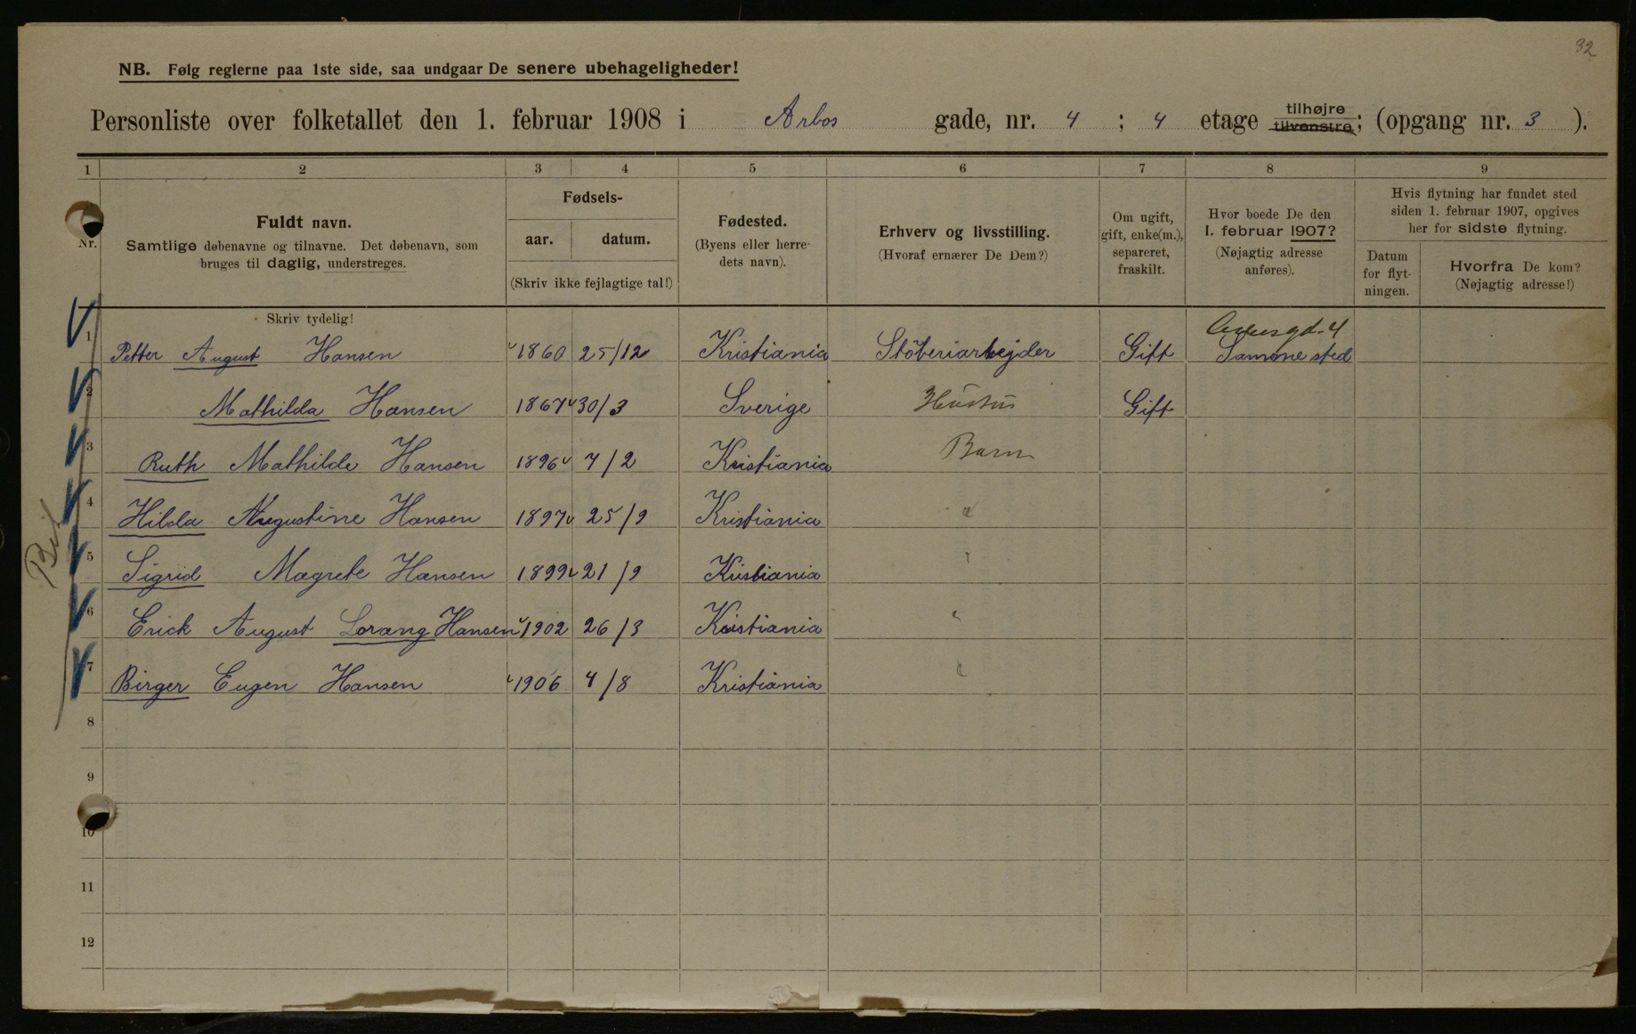 32
NB. Følg reglerne paa 1ste side, saa undgaar De senere ubehageligheder!
Personliste over folketallet den 1. februar 1908 i Arbos gade, nr. 4 ; 4 etage tilhøjre tilvenstre; (opgang nr. 3 ).
1 2 3 4 5 6 7 8 9
Nr.
Fuldt navn.
Samtlige døbenavne og tilnavne. Det døbenavn, som
bruges til daglig, understreges.
Skriv tydelig!
Fødsels-
aar. datum.
(Skriv ikke fejlagtige tal!)
Fødested.
(Byens eller herre-
dets navn).
Erhverv og livsstilling.
(Hvoraf ernærer De Dem?)
Om ugift,
gift, enke(m.),
separeret,
fraskilt.
Hvor boede De den
1. februar 1907?
(Nøjagtig adresse
anføres).
Hvis flytning har fundet sted
siden 1. februar 1907, opgives
her for sidste flytning.
Datum
for flyt-
ningen.
Hvorfra De kom?
(Nøjagtig adresse!)
1 Petter August Hansen 1860 25/12 Kristiania Stöberiarbejder Gift Samme sted
2 Mathilda Hansen 1867 30/3 Sverige Hustru Gift
3 Ruth Mathilde Hansen 1896 7/2 Kristiania Barn
4 Hilda Augustine Hansen 1897 25/9 Kristiania "
5 Sigrid Magrete Hansen 1899 21/9 Kristiania "
6 Erick August Lorang Hansen 1902 26/3 Kristiania "
7 Birger Eugen Hansen 1906 4/8 Kristiania "
8
9
10
11
12